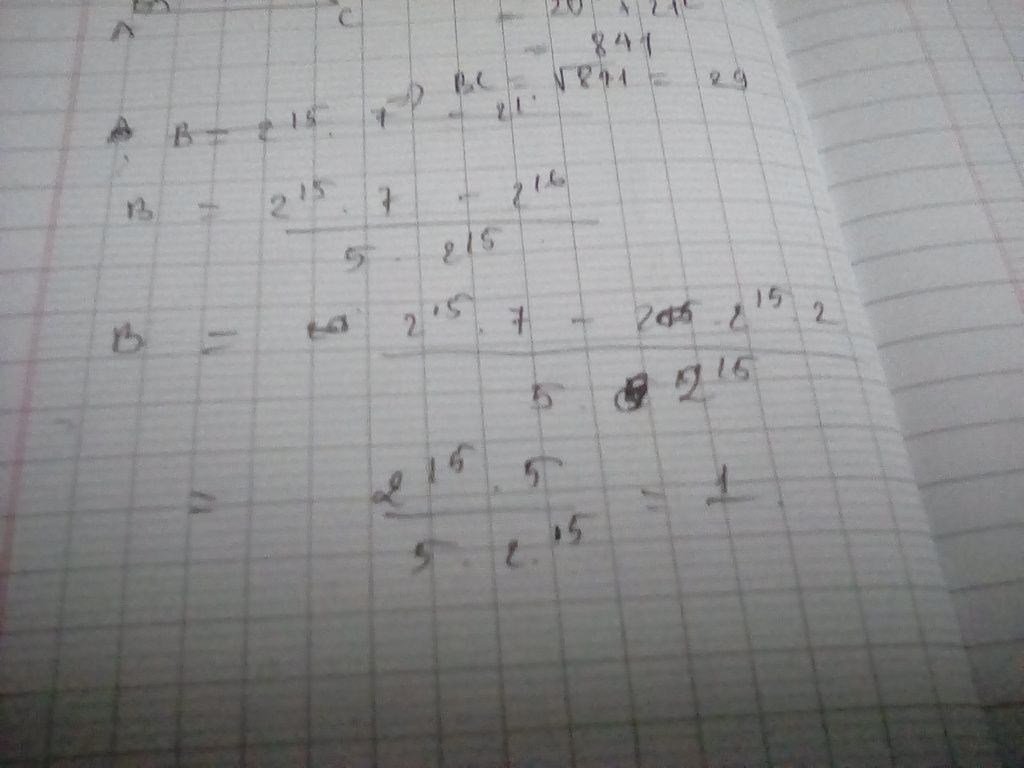 A C = 20² + 21²
= 841
=> BC = √841 = 29
B = 2¹⁵ . 7 - 21
B = 2¹⁵ . 7 - 2¹⁶
5 . 2¹⁵
B = 2¹⁵ . 7 - 2¹⁵ . 2
5 . 2¹⁵
= 2¹⁵ . 5 = 1
5 . 2.¹⁵